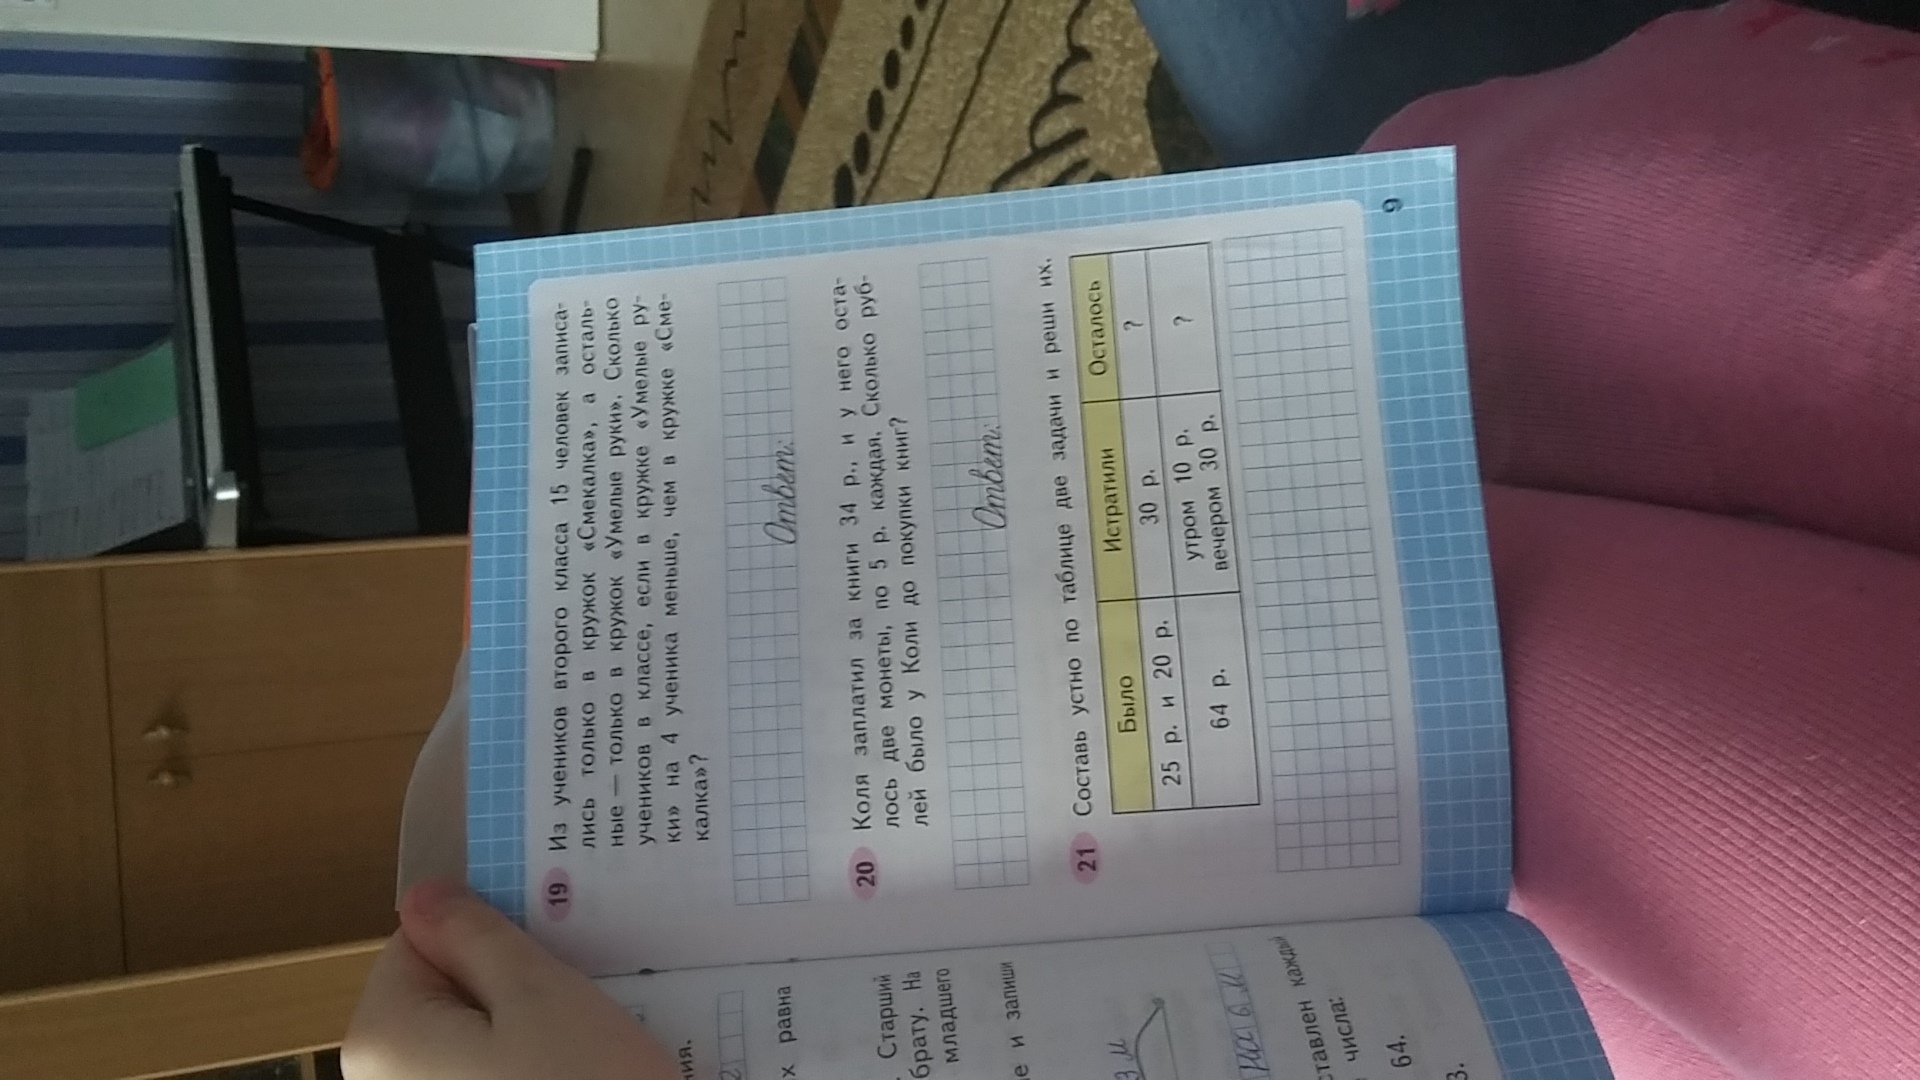 19 Из учеников второго класса 15 человек записа-
лись только в кружок «Смекалка», а осталь-
ные — только в кружок «Умелые руки». Сколько
учеников в классе, если в кружке «Умелые ру-
ки» на 4 ученика меньше, чем в кружке «Сме-
калка»?
Ответ:
20 Коля заплатил за книги 34 р., и у него оста-
лось две монеты, по 5 р. каждая. Сколько руб-
лей было у Коли до покупки книг?
Ответ:
21 Составь устно по таблице две задачи и реши их.
Было Истратили Осталось
25 р. и 20 р. 30 р. ?
64 р. утром 10 р. ?
вечером 30 р.
9
х равна
Старший
брату. На
младшего
е и запиши
каждый
числа:
64.
3.